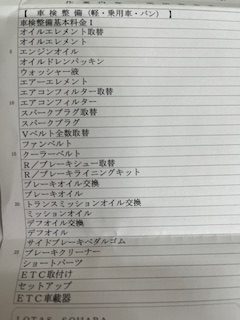 【 車 検 整 備 (軽・乗用車・バン) 】
車検整備基本料金1
オイルエレメント取替
オイルエレメント
5
エンジンオイル
オイルドレンパッキン
ウォッシャー液
エアーエレメント
エアコンフィルター取替
10
エアコンフィルター
スパークプラグ取替
スパークプラグ
Vベルト全数取替
ファンベルト
15
クーラーベルト
R/ブレーキシュー取替
R/ブレーキライニングキット
ブレーキオイル交換
ブレーキオイル
20
トランスミッションオイル交換
ミッションオイル
デフオイル交換
デフオイル
サイドブレーキペダルゴム
25
ブレーキクリーナー
ショートパーツ
ETC取付け
セットアップ
ETC車載器
LOTAS